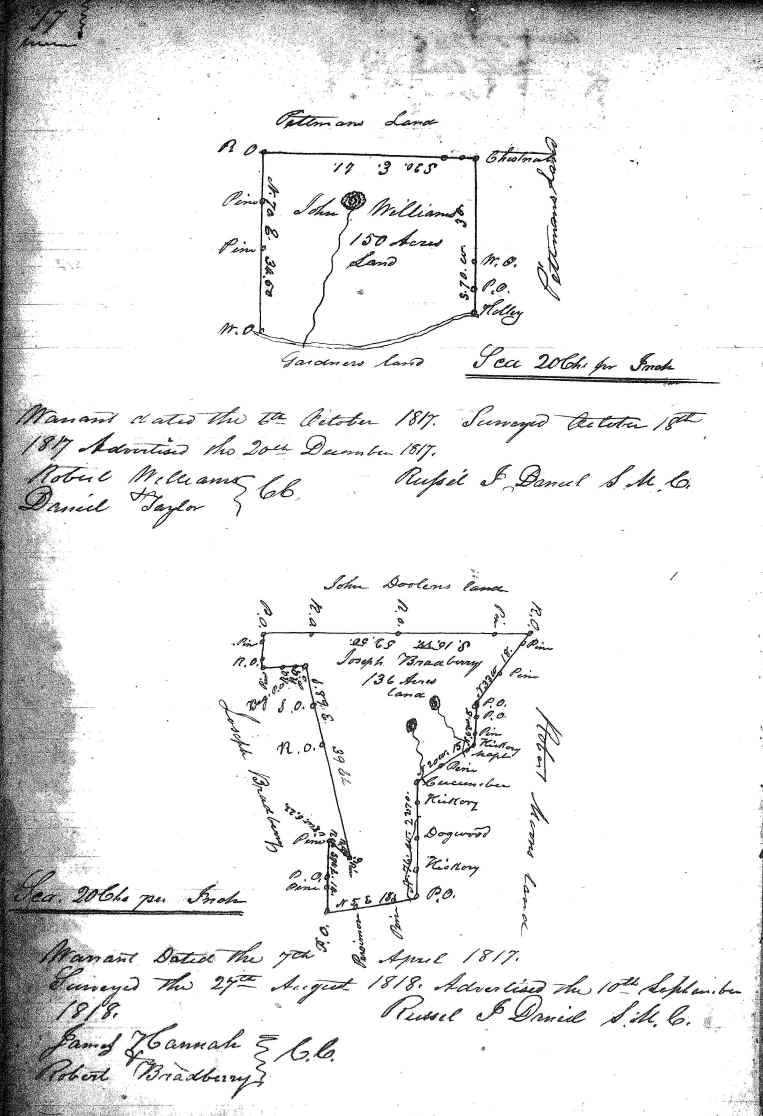 Pettmans Land
R O
Chestnut
S20. E. 41
Pettmans Land
Pine
N. 70 E. 34.60
John Williams
150 Acres
Land
Pine
S. 70. W. 36
W. O.
P. O.
Holley
W. O
Gardners land
Sca 20Chs pr Inch
Warrant dated the 6th October 1817. Surveyed October 18th
1817 Advertised the 20th December 1817.
Robert Williams
& Daniel Taylor } CC
Russel J Daniel S. M. C.
John Doolens land
P.O.
R.O.
Pin
R.O.
Pin
Pine
R.O.
Joseph Bradberry
136 Acres
land
Pine
S. O.
P. O.
P. O.
Pin
Hickory
Maple
R. O.
39
Joseph Bradberry
Robert Moons land
Pine
Cucumber
Hickory
Dogwood
Hickory
P.O.
Pine
P. O.
Pine
N 5 E 18
Persimmon
Pine
Sca. 20Chs per Inch
Warrant Dated the 7th April 1817.
Surveyed the 27th August 1818. Advertised the 10th September
1818.
Russel J Daniel S. M. C.
James Hannah
& Robert Bradberry } C.C.